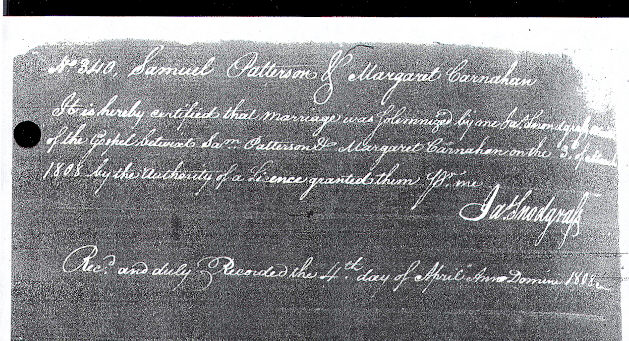 No. 340, Samuel Patterson & Margaret Carnahan
It is hereby certified that marriage was Solemnized by me Jas. Snodgrass
of the Gospel betwixt Sam Patterson & Margaret Carnahan on the 3d of March
1808 by the Authority of a Licence granted them Pr. me
Jas. Snodgrass
Recd. and duly Recorded the 4th day of April Anno Domini 1808